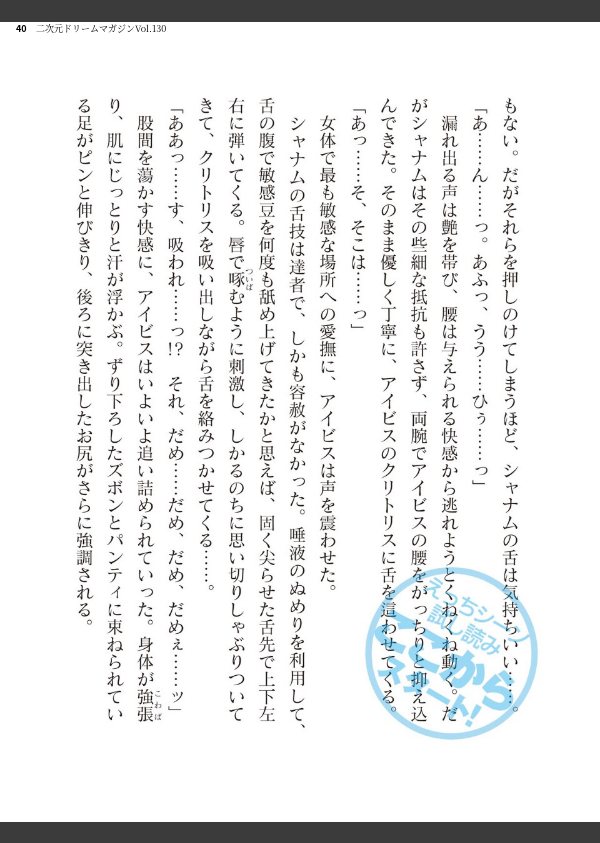 40 二次元ドリームマガジンVol.130
もない。だがそれらを押しのけてしまうほど、シャナムの舌は気持ちいい……。
「あ……ん……っ。あふっ、うう……ひぅ……っ」
漏れ出る声は艶を帯び、腰は与えられる快感から逃れようとくねくね動く。だ
がシャナムはその些細な抵抗も許さず、両腕でアイビスの腰をがっちりと抑え込
んできた。そのまま優しく丁寧に、アイビスのクリトリスに舌を這わせてくる。
「あっ……そ、そこは……っ」
女体で最も敏感な場所への愛撫に、アイビスは声を震わせた。
シャナムの舌技は達者で、しかも容赦がなかった。唾液のぬめりを利用して、
舌の腹で敏感豆を何度も舐め上げてきたかと思えば、固く尖らせた舌先で上下左
右に弾いてくる。唇で啄ついばむように刺激し、しかるのちに思い切りしゃぶりついて
きて、クリトリスを吸い出しながら舌を絡みつかせてくる……。
「ああっ……す、吸われ……っ!? それ、だめ……だめ、だめ、だめぇ……ッ」
股間を蕩かす快感に、アイビスはいよいよ追い詰められていった。身体が強張こわば
り、肌にじっとりと汗が浮かぶ。ずり下ろしたズボンとパンティに束ねられてい
る足がピンと伸びきり、後ろに突き出したお尻がさらに強調される。
えっちシーン
試し読み
ここから
スタート!